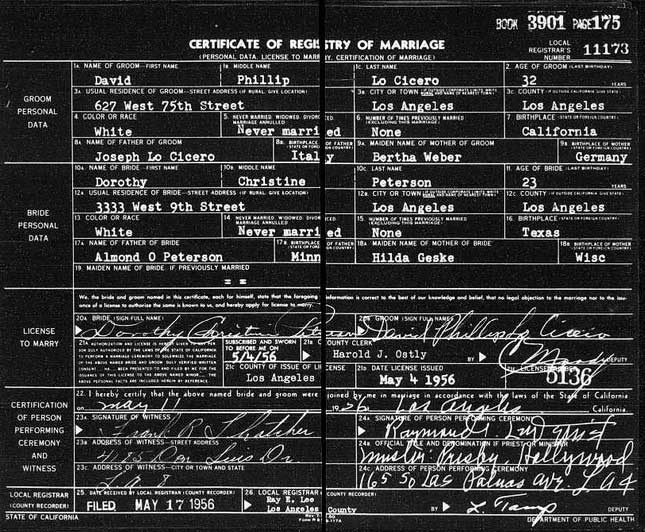 BOOK 3901 PAGE 175
CERTIFICATE OF REGISTRY OF MARRIAGE
(PERSONAL DATA, LICENSE TO MARRY, CERTIFICATION OF MARRIAGE)
LOCAL REGISTRAR'S NUMBER 11173
GROOM PERSONAL DATA
1a. NAME OF GROOM—FIRST NAME 1b. MIDDLE NAME 1c. LAST NAME 2. AGE OF GROOM (LAST BIRTHDAY)
David Phillip Lo Cicero 32 YEARS
3a. USUAL RESIDENCE OF GROOM—STREET ADDRESS (IF RURAL, GIVE LOCATION) 3b. CITY OR TOWN 3c. COUNTY
627 West 75th Street Los Angeles Los Angeles
4. COLOR OR RACE 5. NEVER MARRIED, WIDOWED, DIVORCED, MARRIAGE ANNULLED 6. NUMBER OF TIMES PREVIOUSLY MARRIED 7. BIRTHPLACE (STATE OR FOREIGN COUNTRY)
White Never married None California
8a. NAME OF FATHER OF GROOM 8b. BIRTHPLACE OF FATHER 9a. MAIDEN NAME OF MOTHER OF GROOM 9b. BIRTHPLACE
Joseph Lo Cicero Italy Bertha Weber Germany
BRIDE PERSONAL DATA
10a. NAME OF BRIDE—FIRST NAME 10b. MIDDLE NAME 10c. LAST NAME 11. AGE OF BRIDE (LAST BIRTHDAY)
Dorothy Christine Peterson 23 YEARS
12a. USUAL RESIDENCE OF BRIDE—STREET ADDRESS (IF RURAL, GIVE LOCATION) 12b. CITY OR TOWN 12c. COUNTY
3333 West 9th Street Los Angeles Los Angeles
13. COLOR OR RACE 14. NEVER MARRIED, WIDOWED, DIVORCED, MARRIAGE ANNULLED 15. NUMBER OF TIMES PREVIOUSLY MARRIED 16. BIRTHPLACE (STATE OR FOREIGN COUNTRY)
White Never married None Texas
17a. NAME OF FATHER OF BRIDE 17b. BIRTHPLACE OF FATHER 18a. MAIDEN NAME OF MOTHER OF BRIDE 18b. BIRTHPLACE
Almond O Peterson Minn Hilda Geske Wisc
19. MAIDEN NAME OF BRIDE, IF PREVIOUSLY MARRIED
= =
LICENSE TO MARRY
We, the bride and groom named in this certificate, each for himself, state that the foregoing information is correct to the best of our knowledge and belief, that no legal objection to the marriage nor to the issuance of a license to authorize the same is known to us, and hereby apply for license to marry.
20a. BRIDE (SIGN FULL NAME) 20b. GROOM (SIGN FULL NAME)
Dorothy Christine Peterson David Phillip Lo Cicero
SUBSCRIBED AND SWORN TO BEFORE ME ON COUNTY CLERK
5/4/56 Harold J. Ostly BY DEPUTY
21c. COUNTY OF ISSUE OF LICENSE 21d. DATE LICENSE ISSUED
Los Angeles May 4 1956 5136
CERTIFICATION OF PERSON PERFORMING CEREMONY AND WITNESS
22. I hereby certify that the above named bride and groom were joined by me in marriage in accordance with the laws of the State of California
on May 11 1956 Los Angeles California.
23a. SIGNATURE OF WITNESS 24a. SIGNATURE OF PERSON PERFORMING CEREMONY
Frank R. Thatcher Raymond I.
23b. ADDRESS OF WITNESS—STREET ADDRESS 24b. OFFICIAL TITLE AND DENOMINATION IF PRIEST OR MINISTER
4185 Don Luis Dr Minister Presby. Hollywood
23c. ADDRESS OF WITNESS—CITY OR TOWN AND STATE 24c. ADDRESS OF PERSON PERFORMING CEREMONY
L.A. 8 1165 So Las Palmas ave. L A 4
LOCAL REGISTRAR (COUNTY RECORDER)
25. DATE RECEIVED BY LOCAL REGISTRAR (COUNTY RECORDER) 26. LOCAL REGISTRAR (COUNTY RECORDER)
FILED MAY 17 1956 Ray E. Lee Los Angeles County BY DEPUTY
STATE OF CALIFORNIA DEPARTMENT OF PUBLIC HEALTH